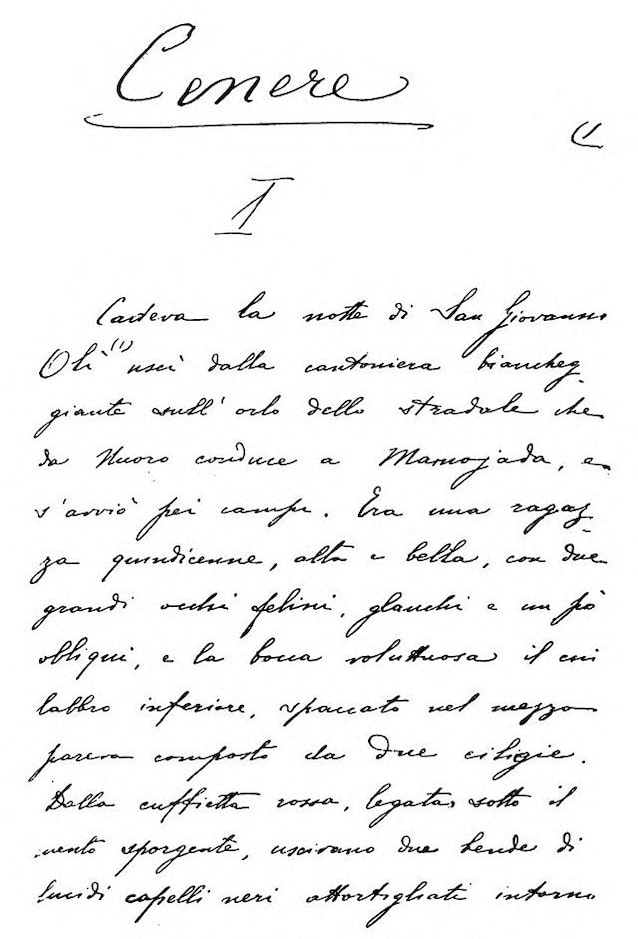 Cenere
1
I
Cadeva la notte di San Giovanni
Olì (1) uscì dalla cantoniera biancheg-
giante sull'orlo dello stradale che
da Nuoro conduce a Mamojada, e
s'avviò pei campi. Era una ragaz-
za quindicenne, alta e bella, con due
grandi occhi felini, glauchi e un pò
obliqui, e la bocca voluttuosa il cui
labbro inferiore, spaccato nel mezzo
pareva composto da due ciligie.
Dalla cuffietta rossa, legata sotto il
mento sporgente, uscivano due bende di
lucidi capelli neri attortigliati intorno